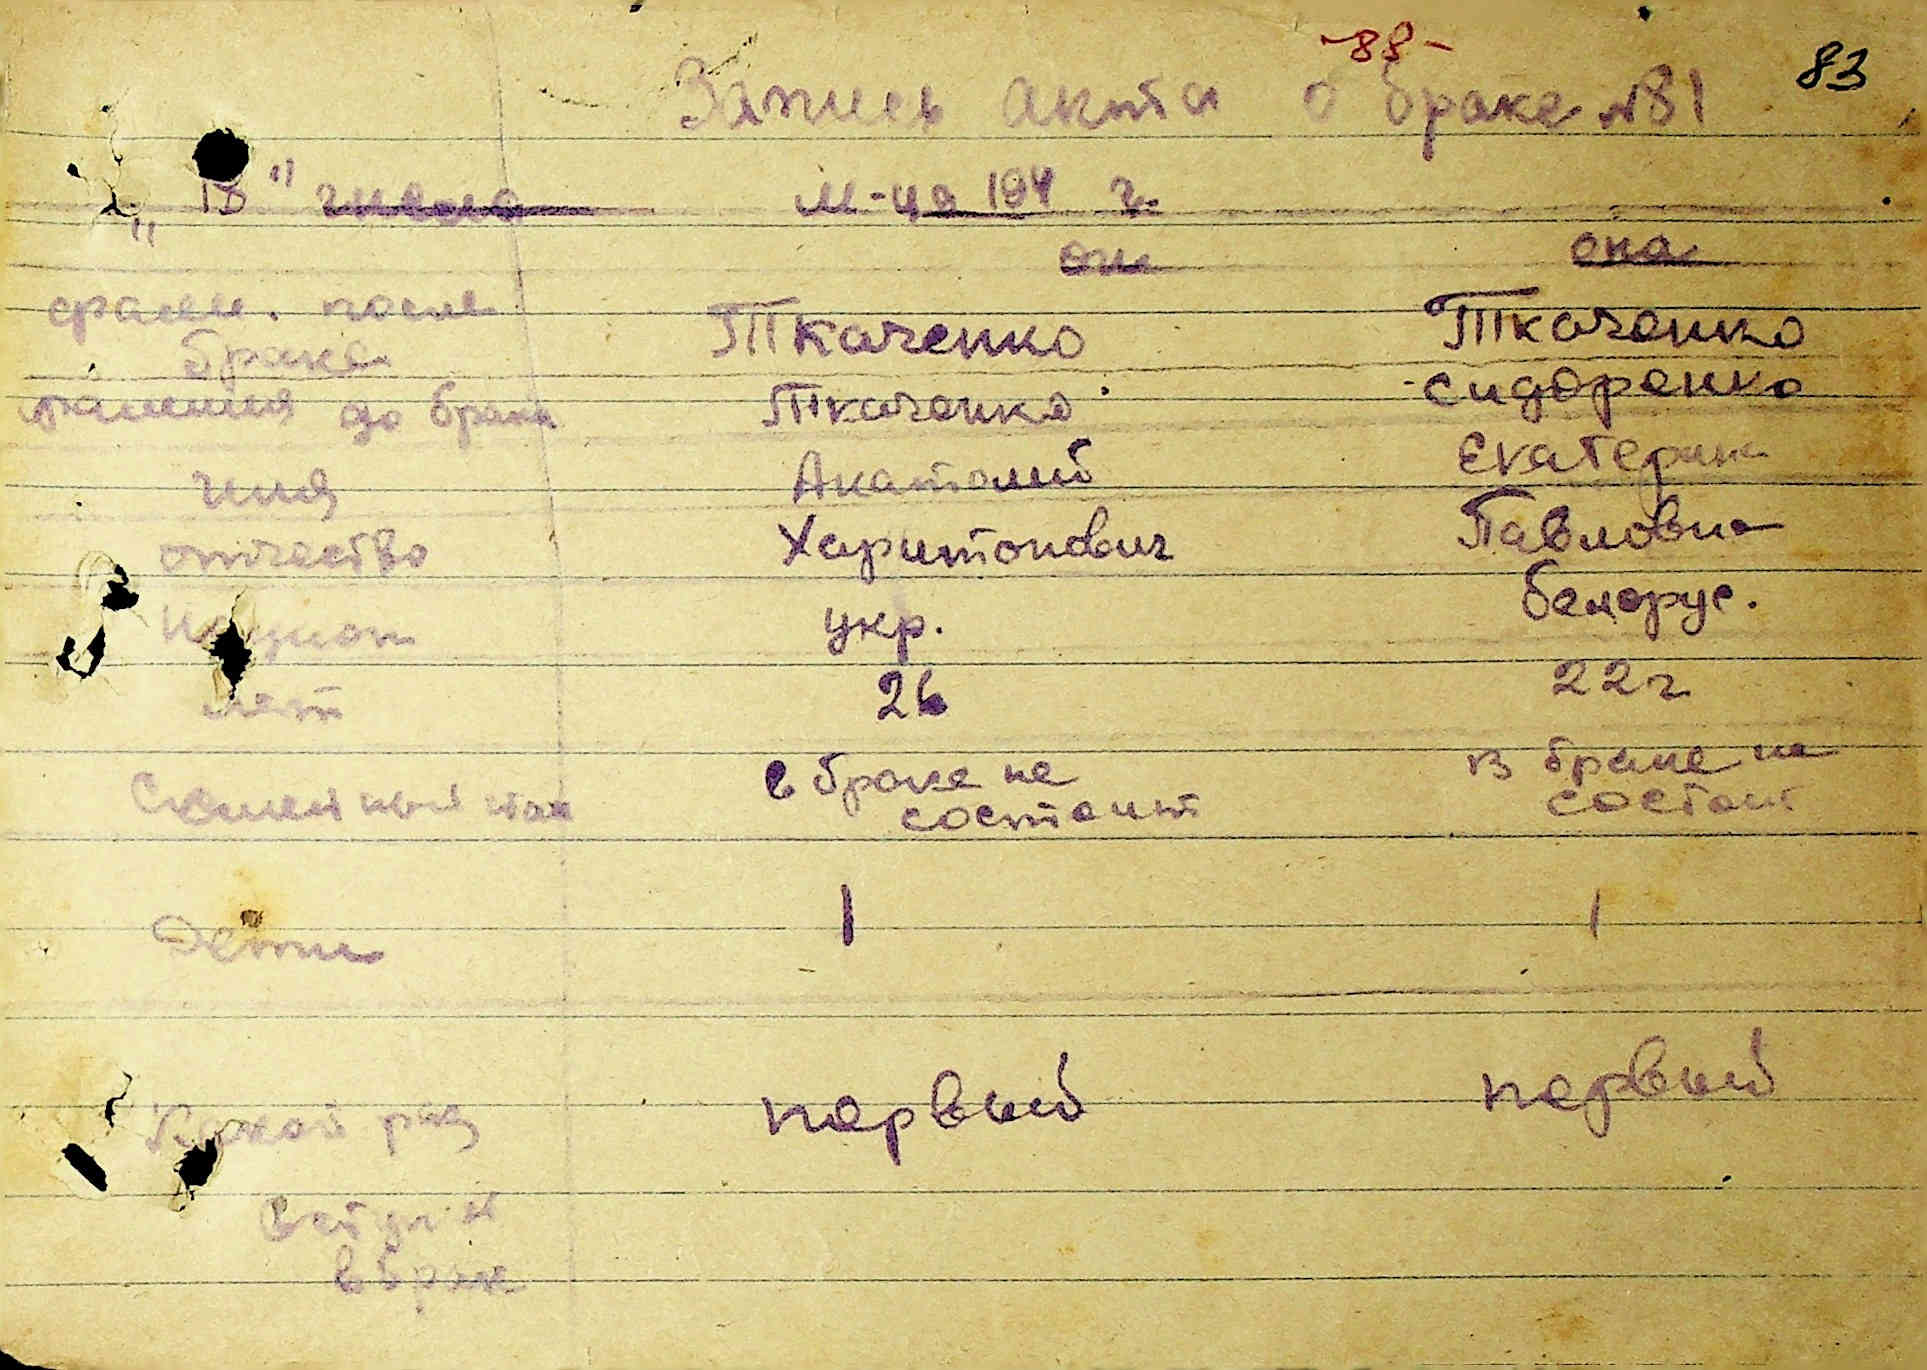 -88-
83
Запись акта о браке №81
"18" числа м-ця 194 г.
он она
фамил. после брака Ткаченко Ткаченко
фамилия до брака Ткаченко Сидоренко
имя Анатолий Екатерина
отчество Харитонович Павловна
национ укр. белорус.
лет 26 22 г
Семейный стан в браке не состоит в браке не состоит
Дети | |
Какой раз первый первый
в брак